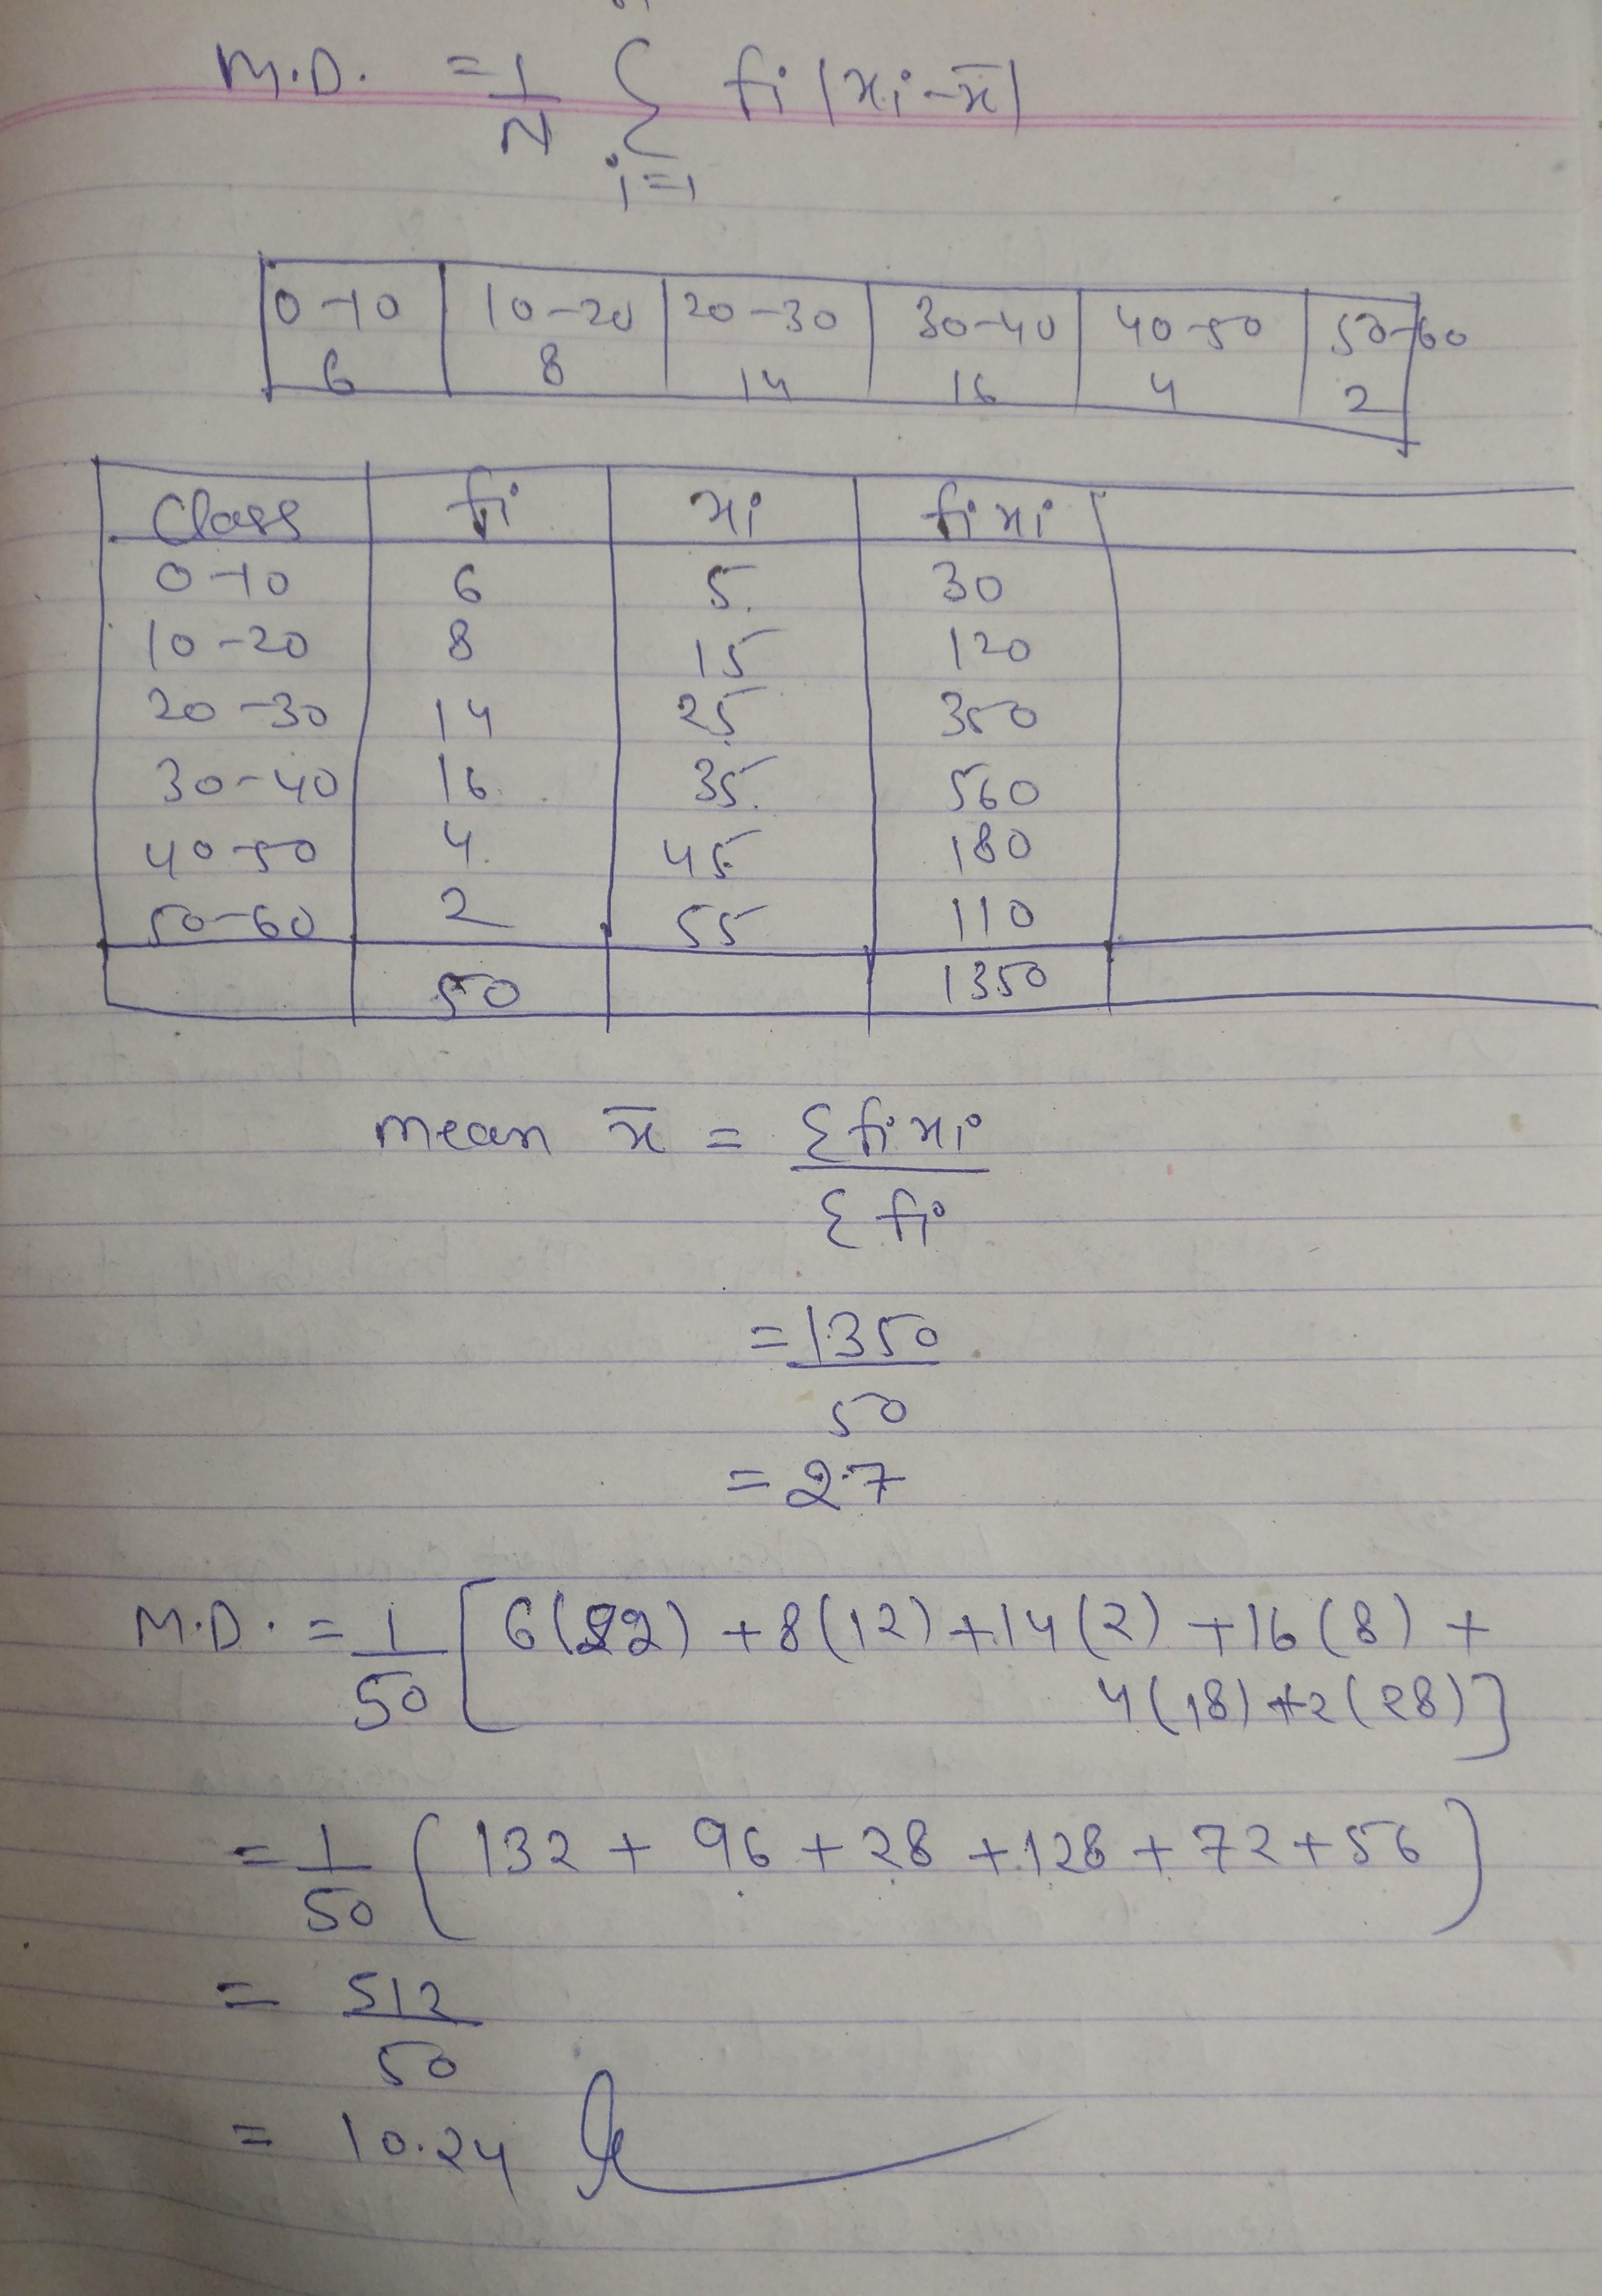 M.D. = 1/N Σ i=1 fi |xi - x̄|
0-10 | 10-20 | 20-30 | 30-40 | 40-50 | 50-60
6 | 8 | 14 | 16 | 4 | 2
Class | fi | xi | fixi
0-10 | 6 | 5 | 30
10-20 | 8 | 15 | 120
20-30 | 14 | 25 | 350
30-40 | 16 | 35 | 560
40-50 | 4 | 45 | 180
50-60 | 2 | 55 | 110
50 | 1350
mean x̄ = Σfixi / Σfi
= 1350 / 50
= 2.7
M.D. = 1/50 [ 6(22) + 8(12) + 14(2) + 16(8) +
4(18) + 2(28) ]
= 1/50 ( 132 + 96 + 28 + 128 + 72 + 56 )
= 512 / 50
= 10.24